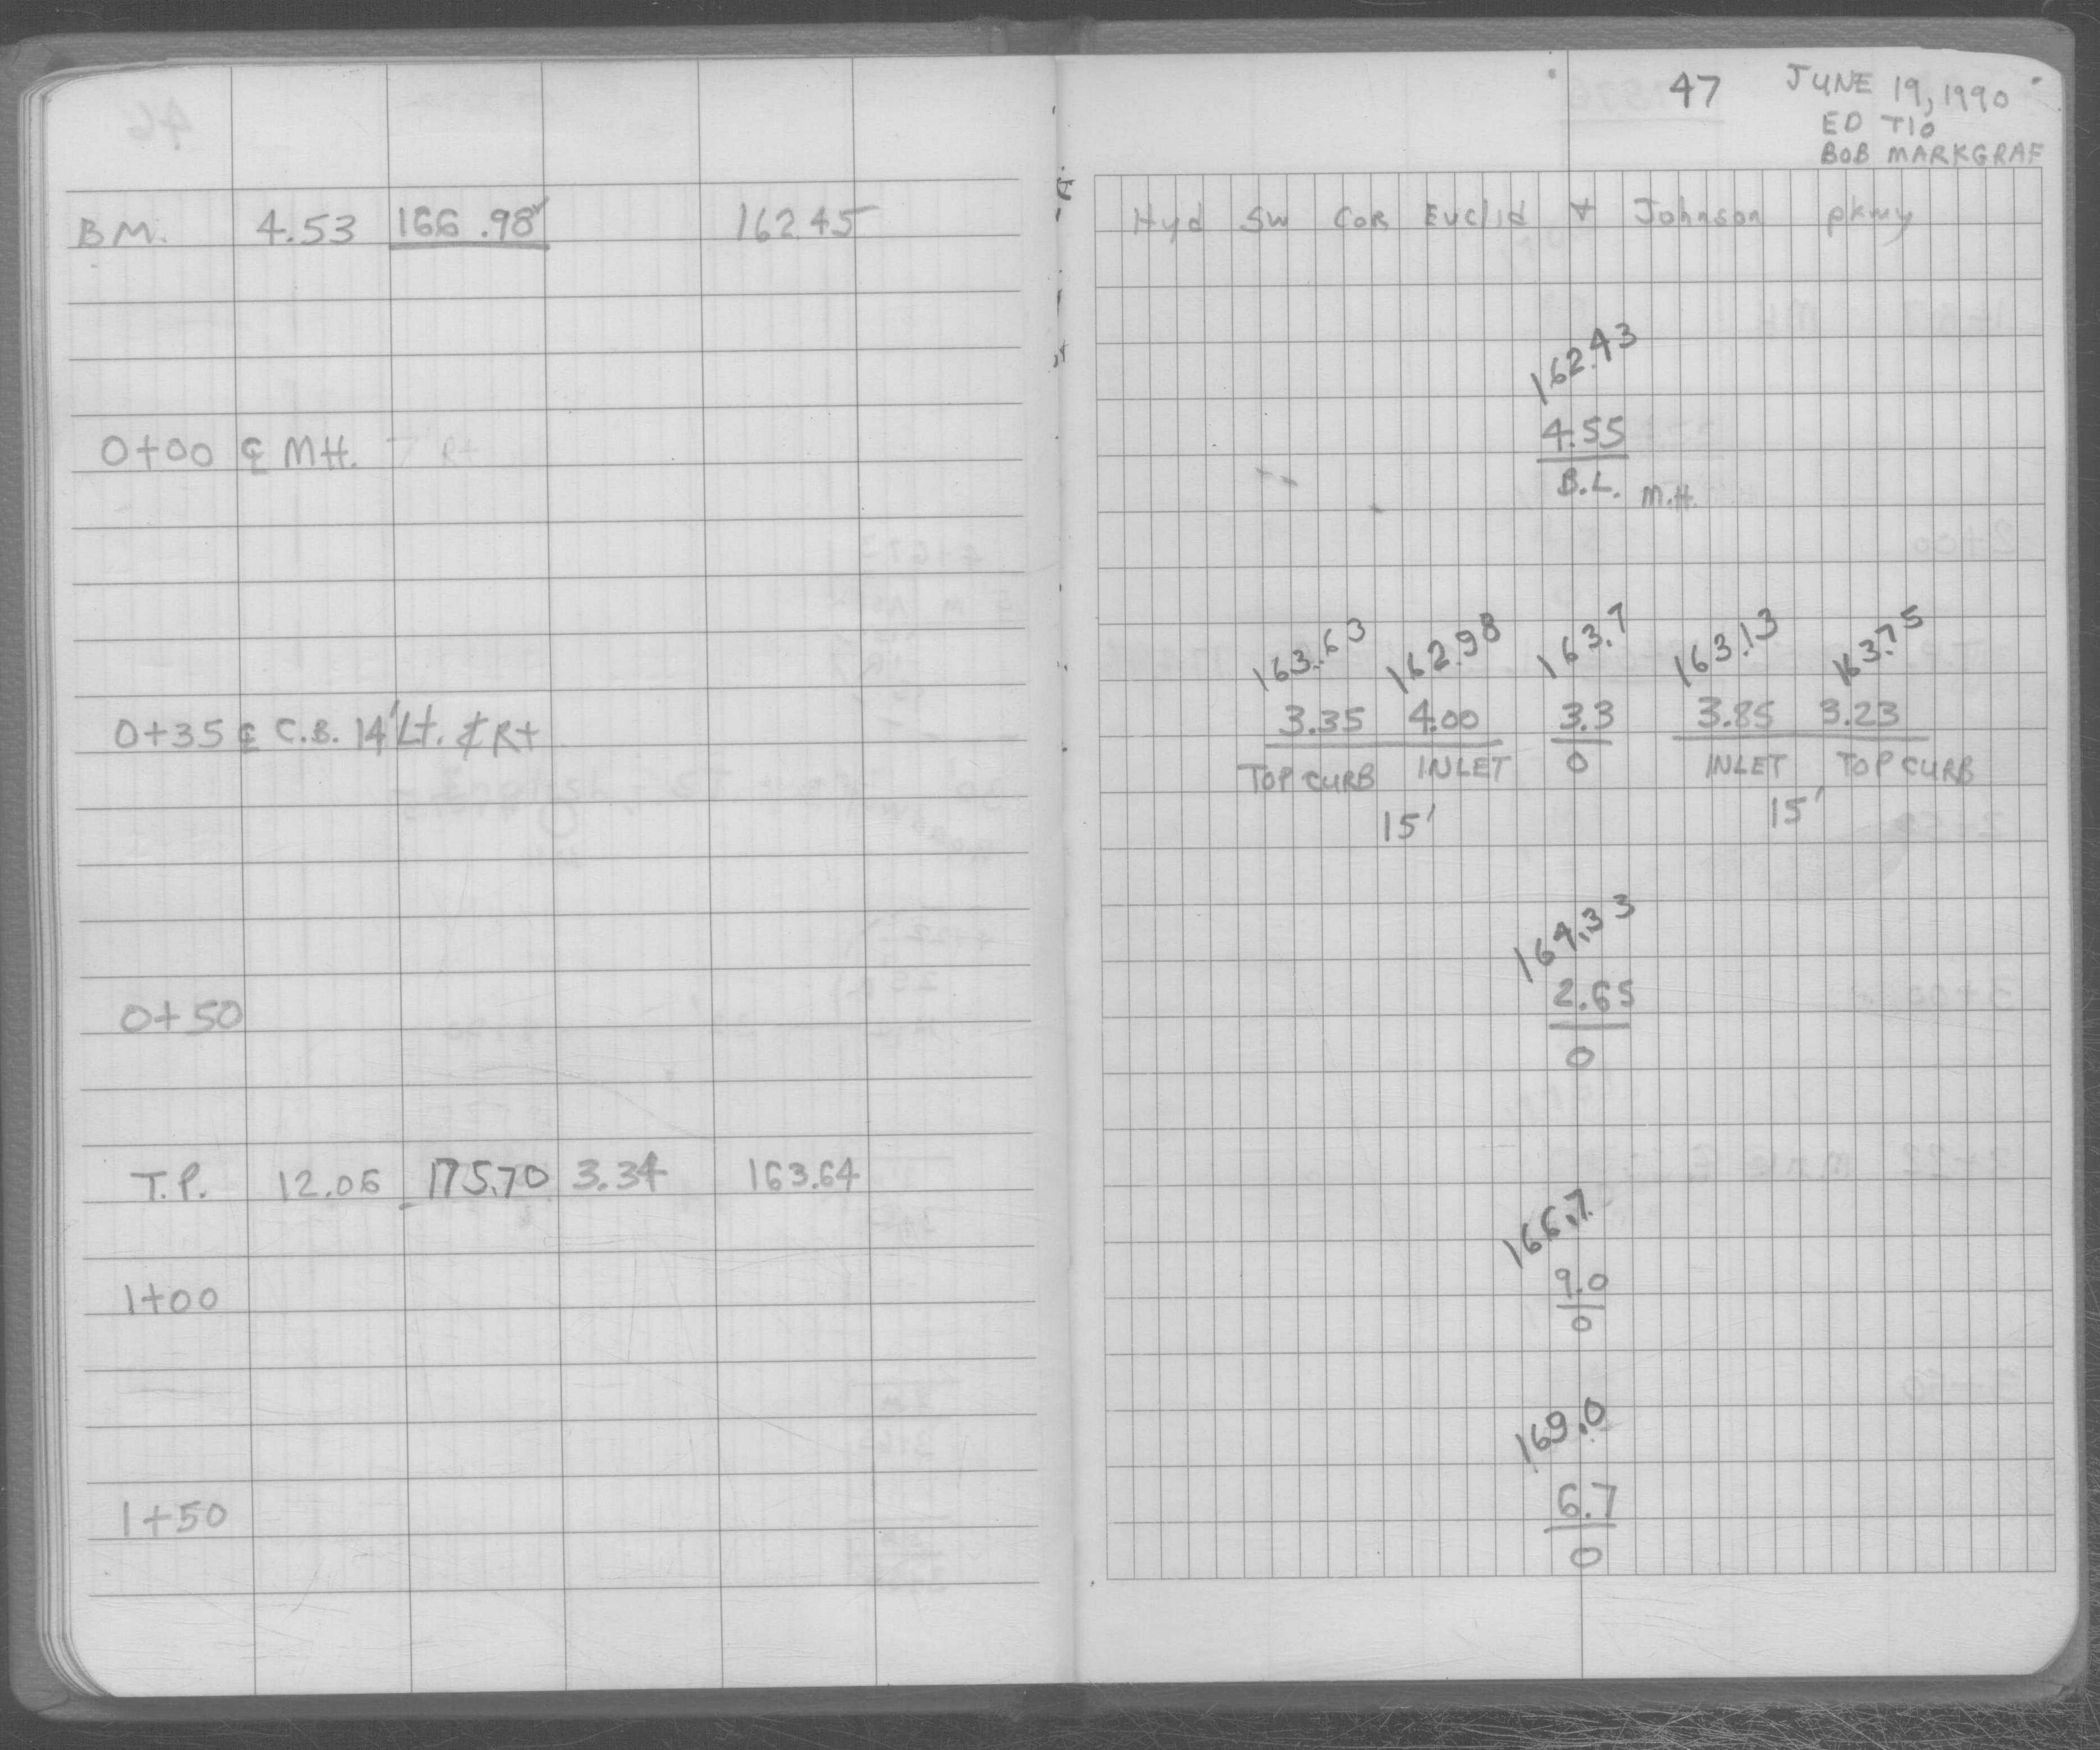 47 JUNE 19, 1990
ED TIO
BOB MARKGRAF
B.M. 4.53 166.98 162.45
Hyd SW COR Euclid & Johnson pkwy
162.43
0+00 ℄ MH. 7' Rt
4.55
B.L. M.H.
163.63 162.98 163.7 163.13 163.75
0+35 ℄ C.B. 14' Lt. ⊄ Rt
3.35 4.00 3.3 3.85 3.23
TOP CURB INLET 0 INLET TOP CURB
15' 15'
164.33
0+50
2.65
0
T.P. 12.06 175.70 3.34 163.64
166.7
1+00
9.0
0
169.0
1+50
6.7
0